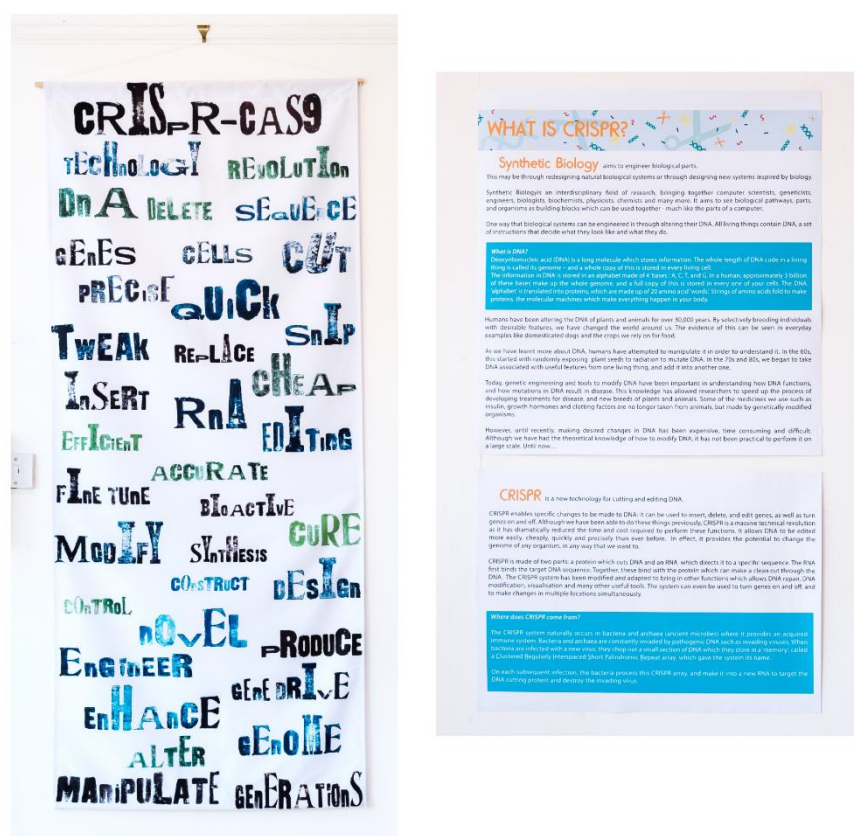 CRISPR-CAS9
TECHNOLOGY REVOLUTION
DNA DELETE SEQUENCE
GENES CELLS CUT
PRECISE QUICK
TWEAK REPLACE SNIP
INSERT RNA CHEAP
EFFICIENT EDITING
ACCURATE
FINE TUNE BIOACTIVE
MODIFY SYNTHESIS CURE
CONSTRUCT DESIGN
CONTROL
NOVEL PRODUCE
ENGINEER
GENE DRIVE
ENHANCE
ALTER GENOME
MANIPULATE GENERATIONS
WHAT IS CRISPR?
Synthetic Biology aims to engineer biological parts.
This may be through redesigning natural biological systems or through designing new systems inspired by biology.
Synthetic Biologyis an interdisciplinary field of research, bringing together computer scientists, geneticists,
engineers, biologists, biochemists, physicists, chemists and many more. It aims to see biological pathways, parts,
and organisms as building blocks which can be used together - much like the parts of a computer.
One way that biological systems can be engineered is through altering their DNA. All living things contain DNA, a set
of instructions that decide what they look like and what they do.
What is DNA?
Deoxyribonucleic acid (DNA) is a long molecule which stores information. The whole length of DNA code in a living
thing is called its genome – and a whole copy of this is stored in every living cell.
The information in DNA is stored in an alphabet made of 4 'bases': A, C, T, and G. In a human, approximately 3 billion
of these bases make up the whole genome, and a full copy of this is stored in every one of your cells. The DNA
'alphabet' is translated into proteins, which are made up of 20 amino acid 'words'. Strings of amino acids fold to make
proteins, the molecular machines which make everything happen in your body.
Humans have been altering the DNA of plants and animals for over 30,000 years. By selectively breeding individuals
with desirable features, we have changed the world around us. The evidence of this can be seen in everyday
examples like domesticated dogs and the crops we rely on for food.
As we have learnt more about DNA, humans have attempted to manipulate it in order to understand it. In the 60s,
this started with randomly exposing plant seeds to radiation to mutate DNA. In the 70s and 80s, we began to take
DNA associated with useful features from one living thing, and add it into another one.
Today, genetic engineering and tools to modify DNA have been important in understanding how DNA functions,
and how mutations in DNA result in disease. This knowledge has allowed researchers to speed up the process of
developing treatments for disease, and new breeds of plants and animals. Some of the medicines we use such as
insulin, growth hormones and clotting factors are no longer taken from animals, but made by genetically modified
organisms.
However, until recently, making desired changes in DNA has been expensive, time consuming and difficult.
Although we have had the theoretical knowledge of how to modify DNA, it has not been practical to perform it on
a large scale. Until now...
CRISPR is a new technology for cutting and editing DNA.
CRISPR enables specific changes to be made to DNA: it can be used to insert, delete, and edit genes, as well as turn
genes on and off. Although we have been able to do these things previously, CRISPR is a massive technical revolution
as it has dramatically reduced the time and cost required to perform these functions. It allows DNA to be edited
more easily, cheaply, quickly and precisely than ever before. In effect, it provides the potential to change the
genome of any organism, in any way that we want to.
CRISPR is made of two parts: a protein which cuts DNA and an RNA, which directs it to a specific sequence. The RNA
first binds the target DNA sequence. Together, these bind with the protein which can make a clean cut through the
DNA. The CRISPR system has been modified and adapted to bring in other functions which allows DNA repair, DNA
modification, visualisation and many other useful tools. The system can even be used to turn genes on and off, and
to make changes in multiple locations simultaneously.
Where does CRISPR come from?
The CRISPR system naturally occurs in bacteria and archaea (ancient microbes) where it provides an acquired
immune system. Bacteria and archaea are constantly invaded by pathogenic DNA such as invading viruses. When
bacteria are infected with a new virus, they chop out a small section of DNA which they store in a 'memory', called
a Clustered Regularly Interspaced Short Palindromic Repeat array, which gave the system its name.
On each subsequent infection, the bacteria process this CRISPR array, and make it into a new RNA to target the
DNA cutting protein and destroy the invading virus.